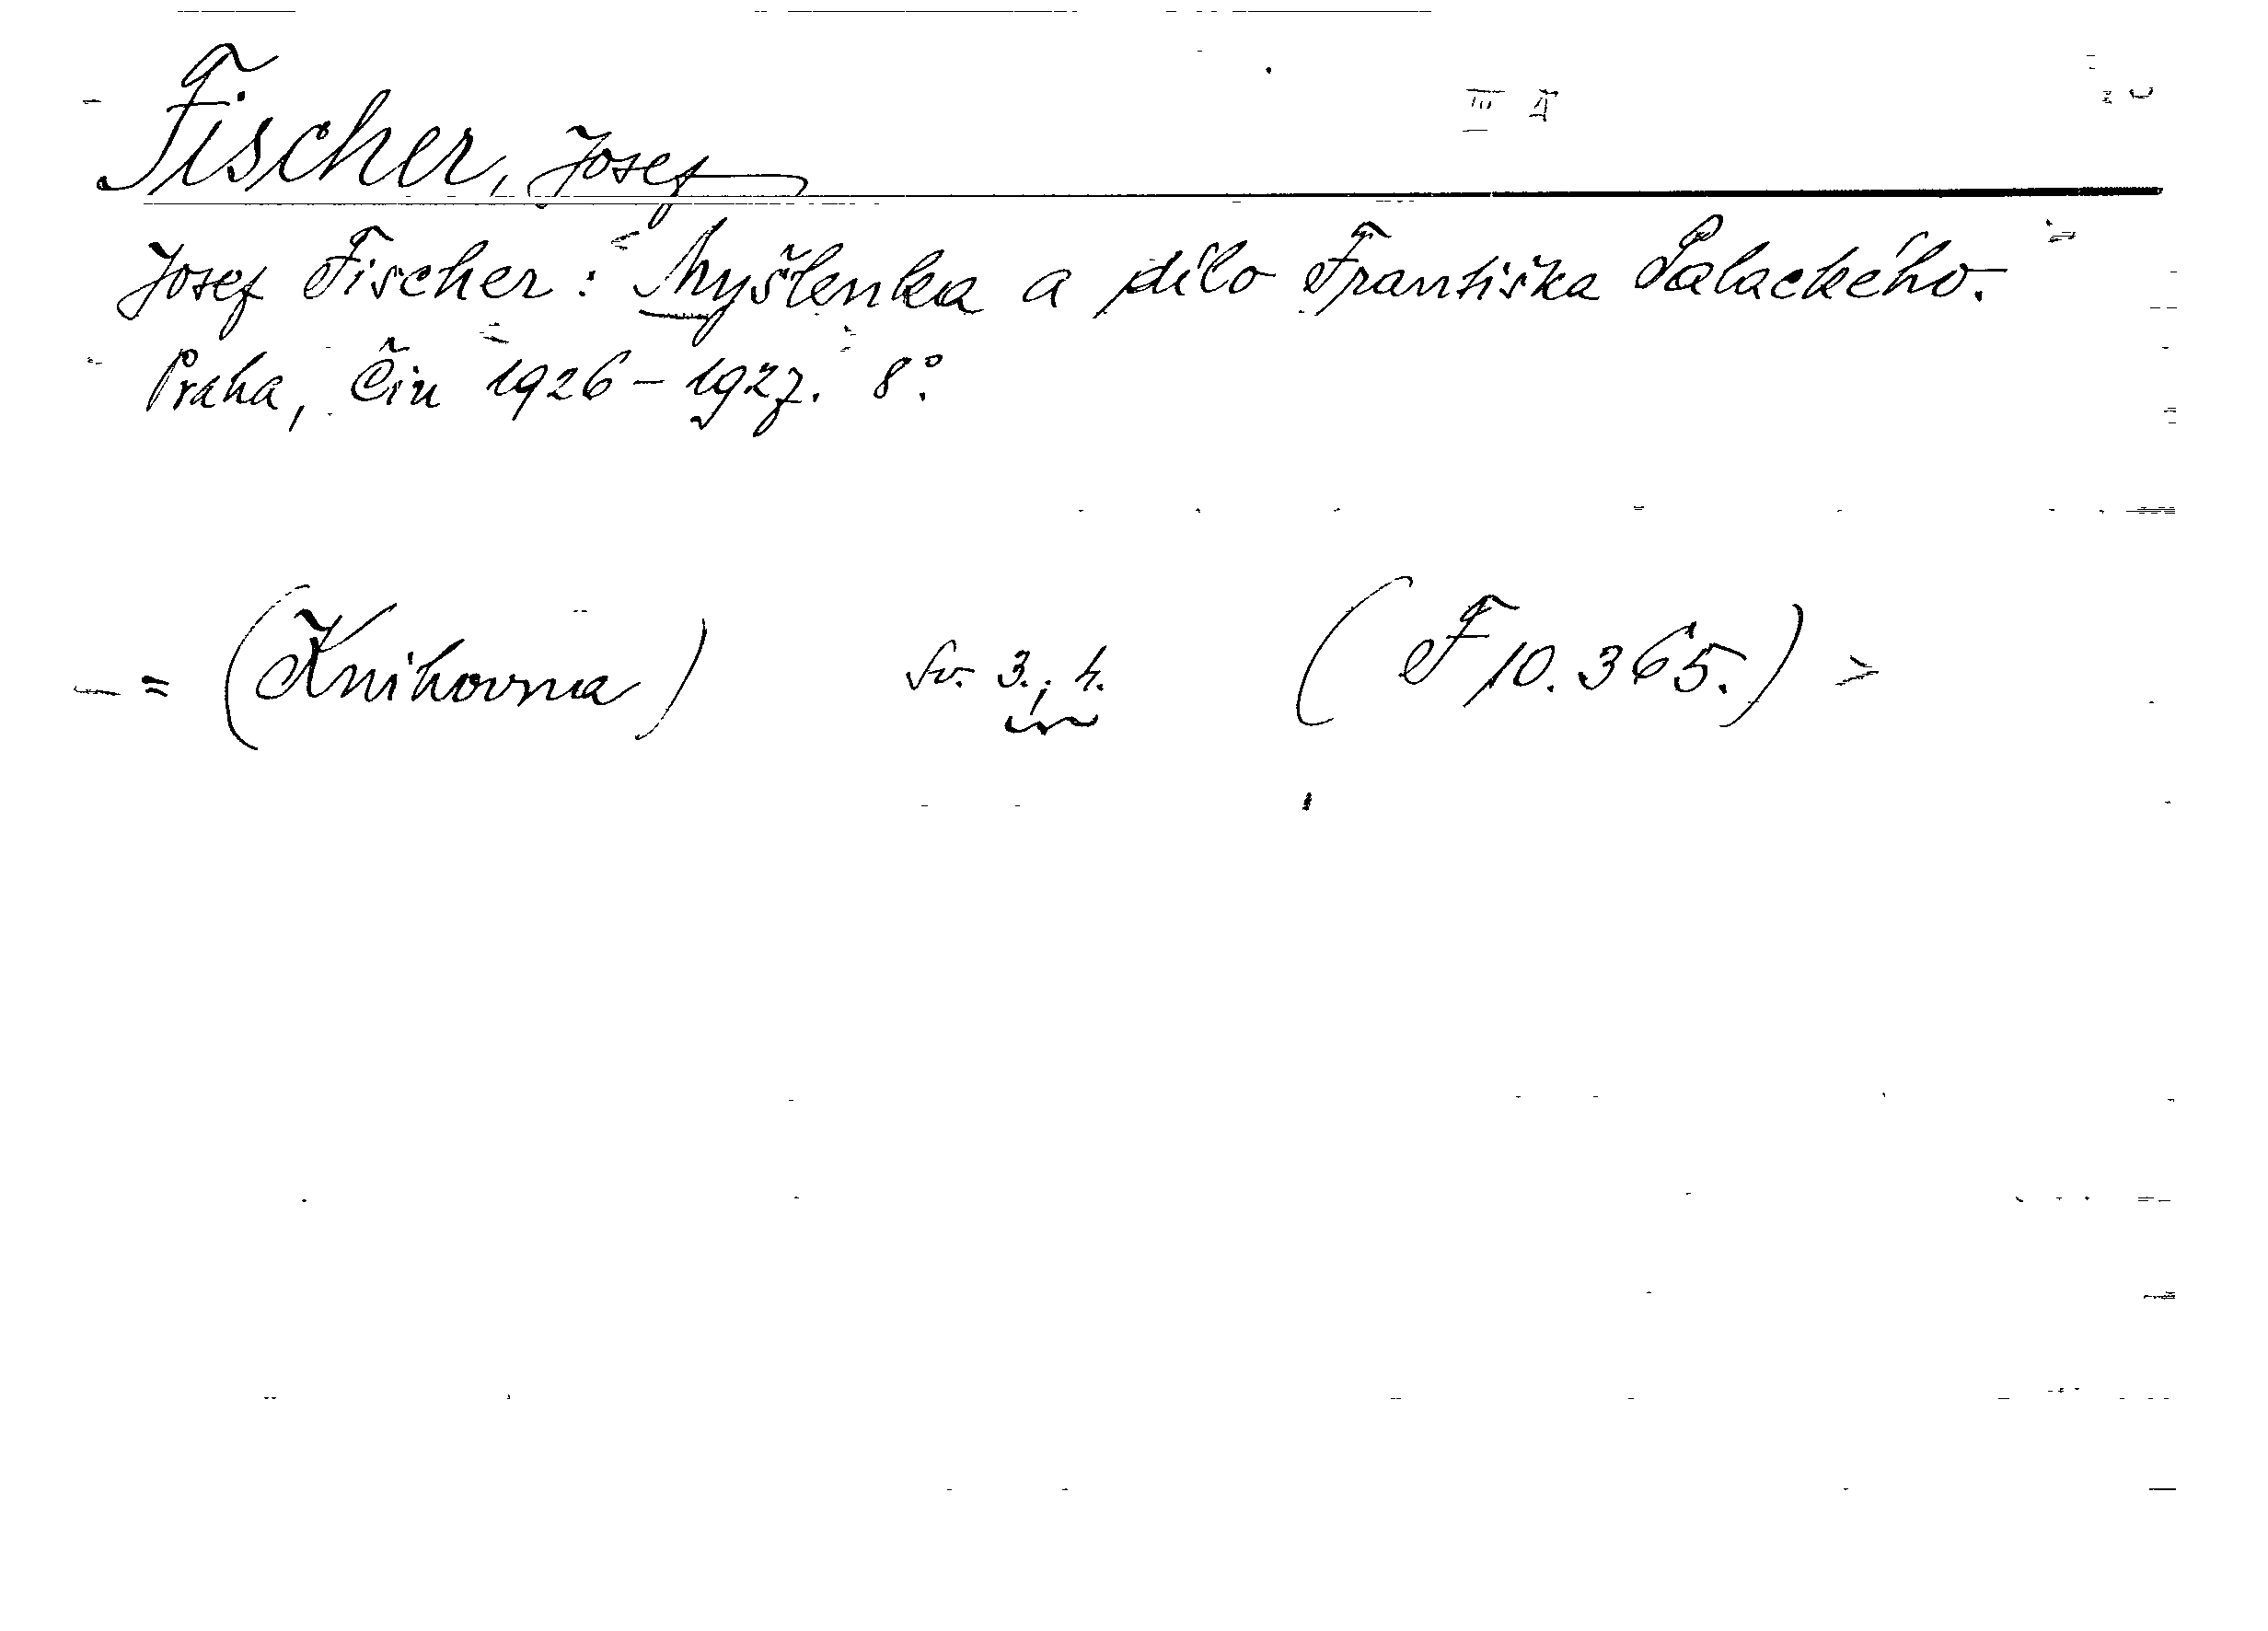 Fischer, Josef
Josef Fischer: Myšlenka a dílo Františka Palackého.
Praha, Čin 1926-1927. 8°.
= (Knihovna) Sv. 3., 4. (F 10.365.)